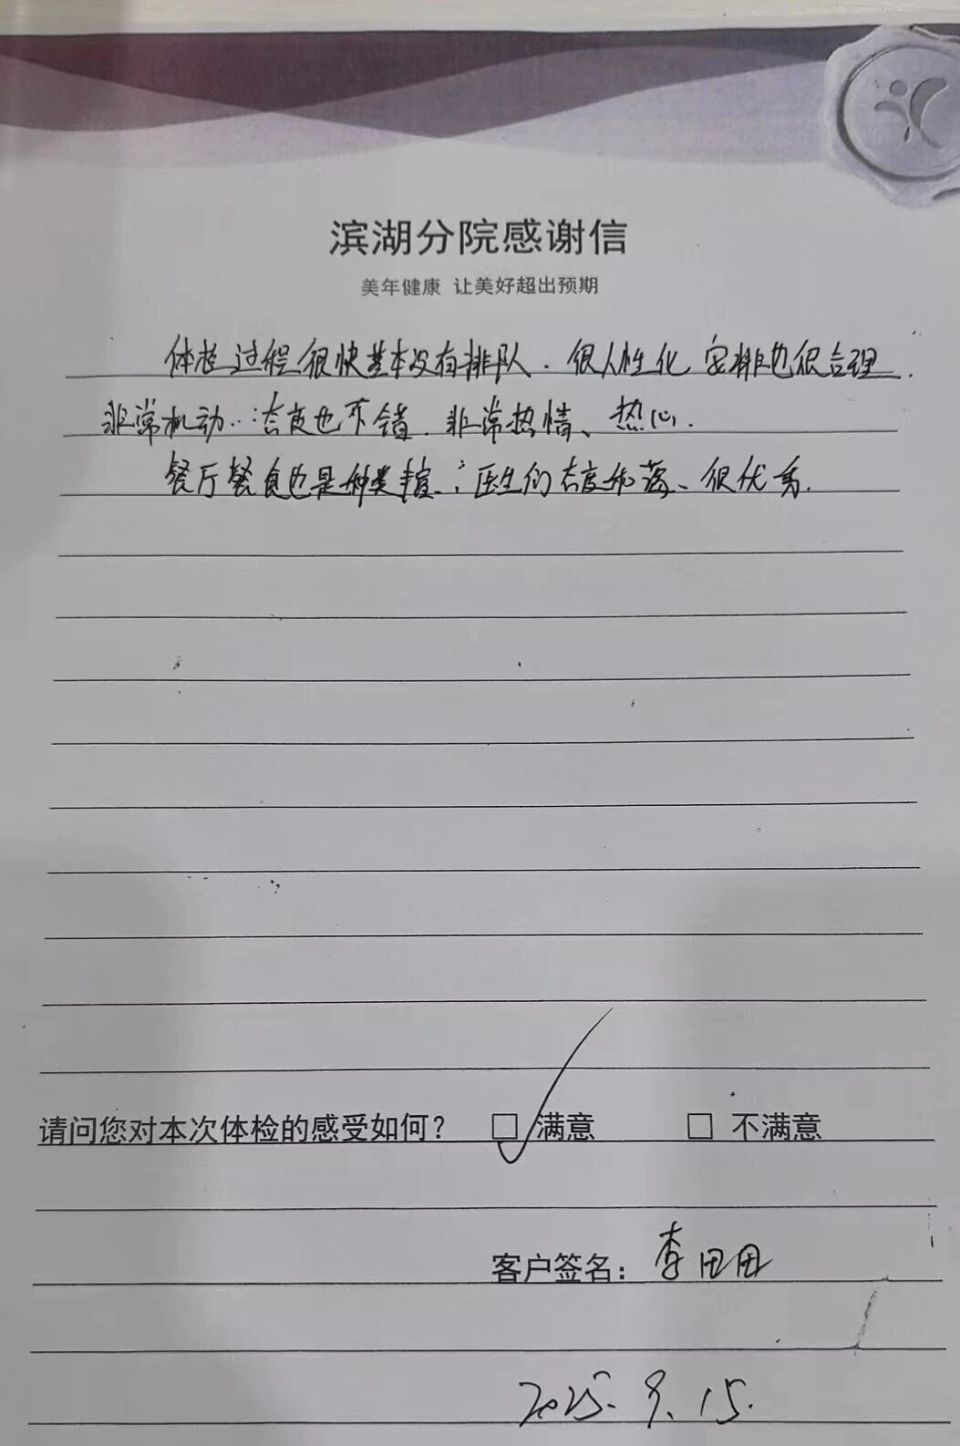 滨湖分院感谢信
美年健康 让美好超出预期
体检过程很快基本没有排队.很人性化 安排也很合理.
非常机动..:态度也不错.非常热情、热心.
餐厅餐食也是种类丰富.;医生们态度和蔼、很优秀.
请问您对本次体检的感受如何? ☑ 满意 □ 不满意
客户签名: 李田田
2025.9.15.